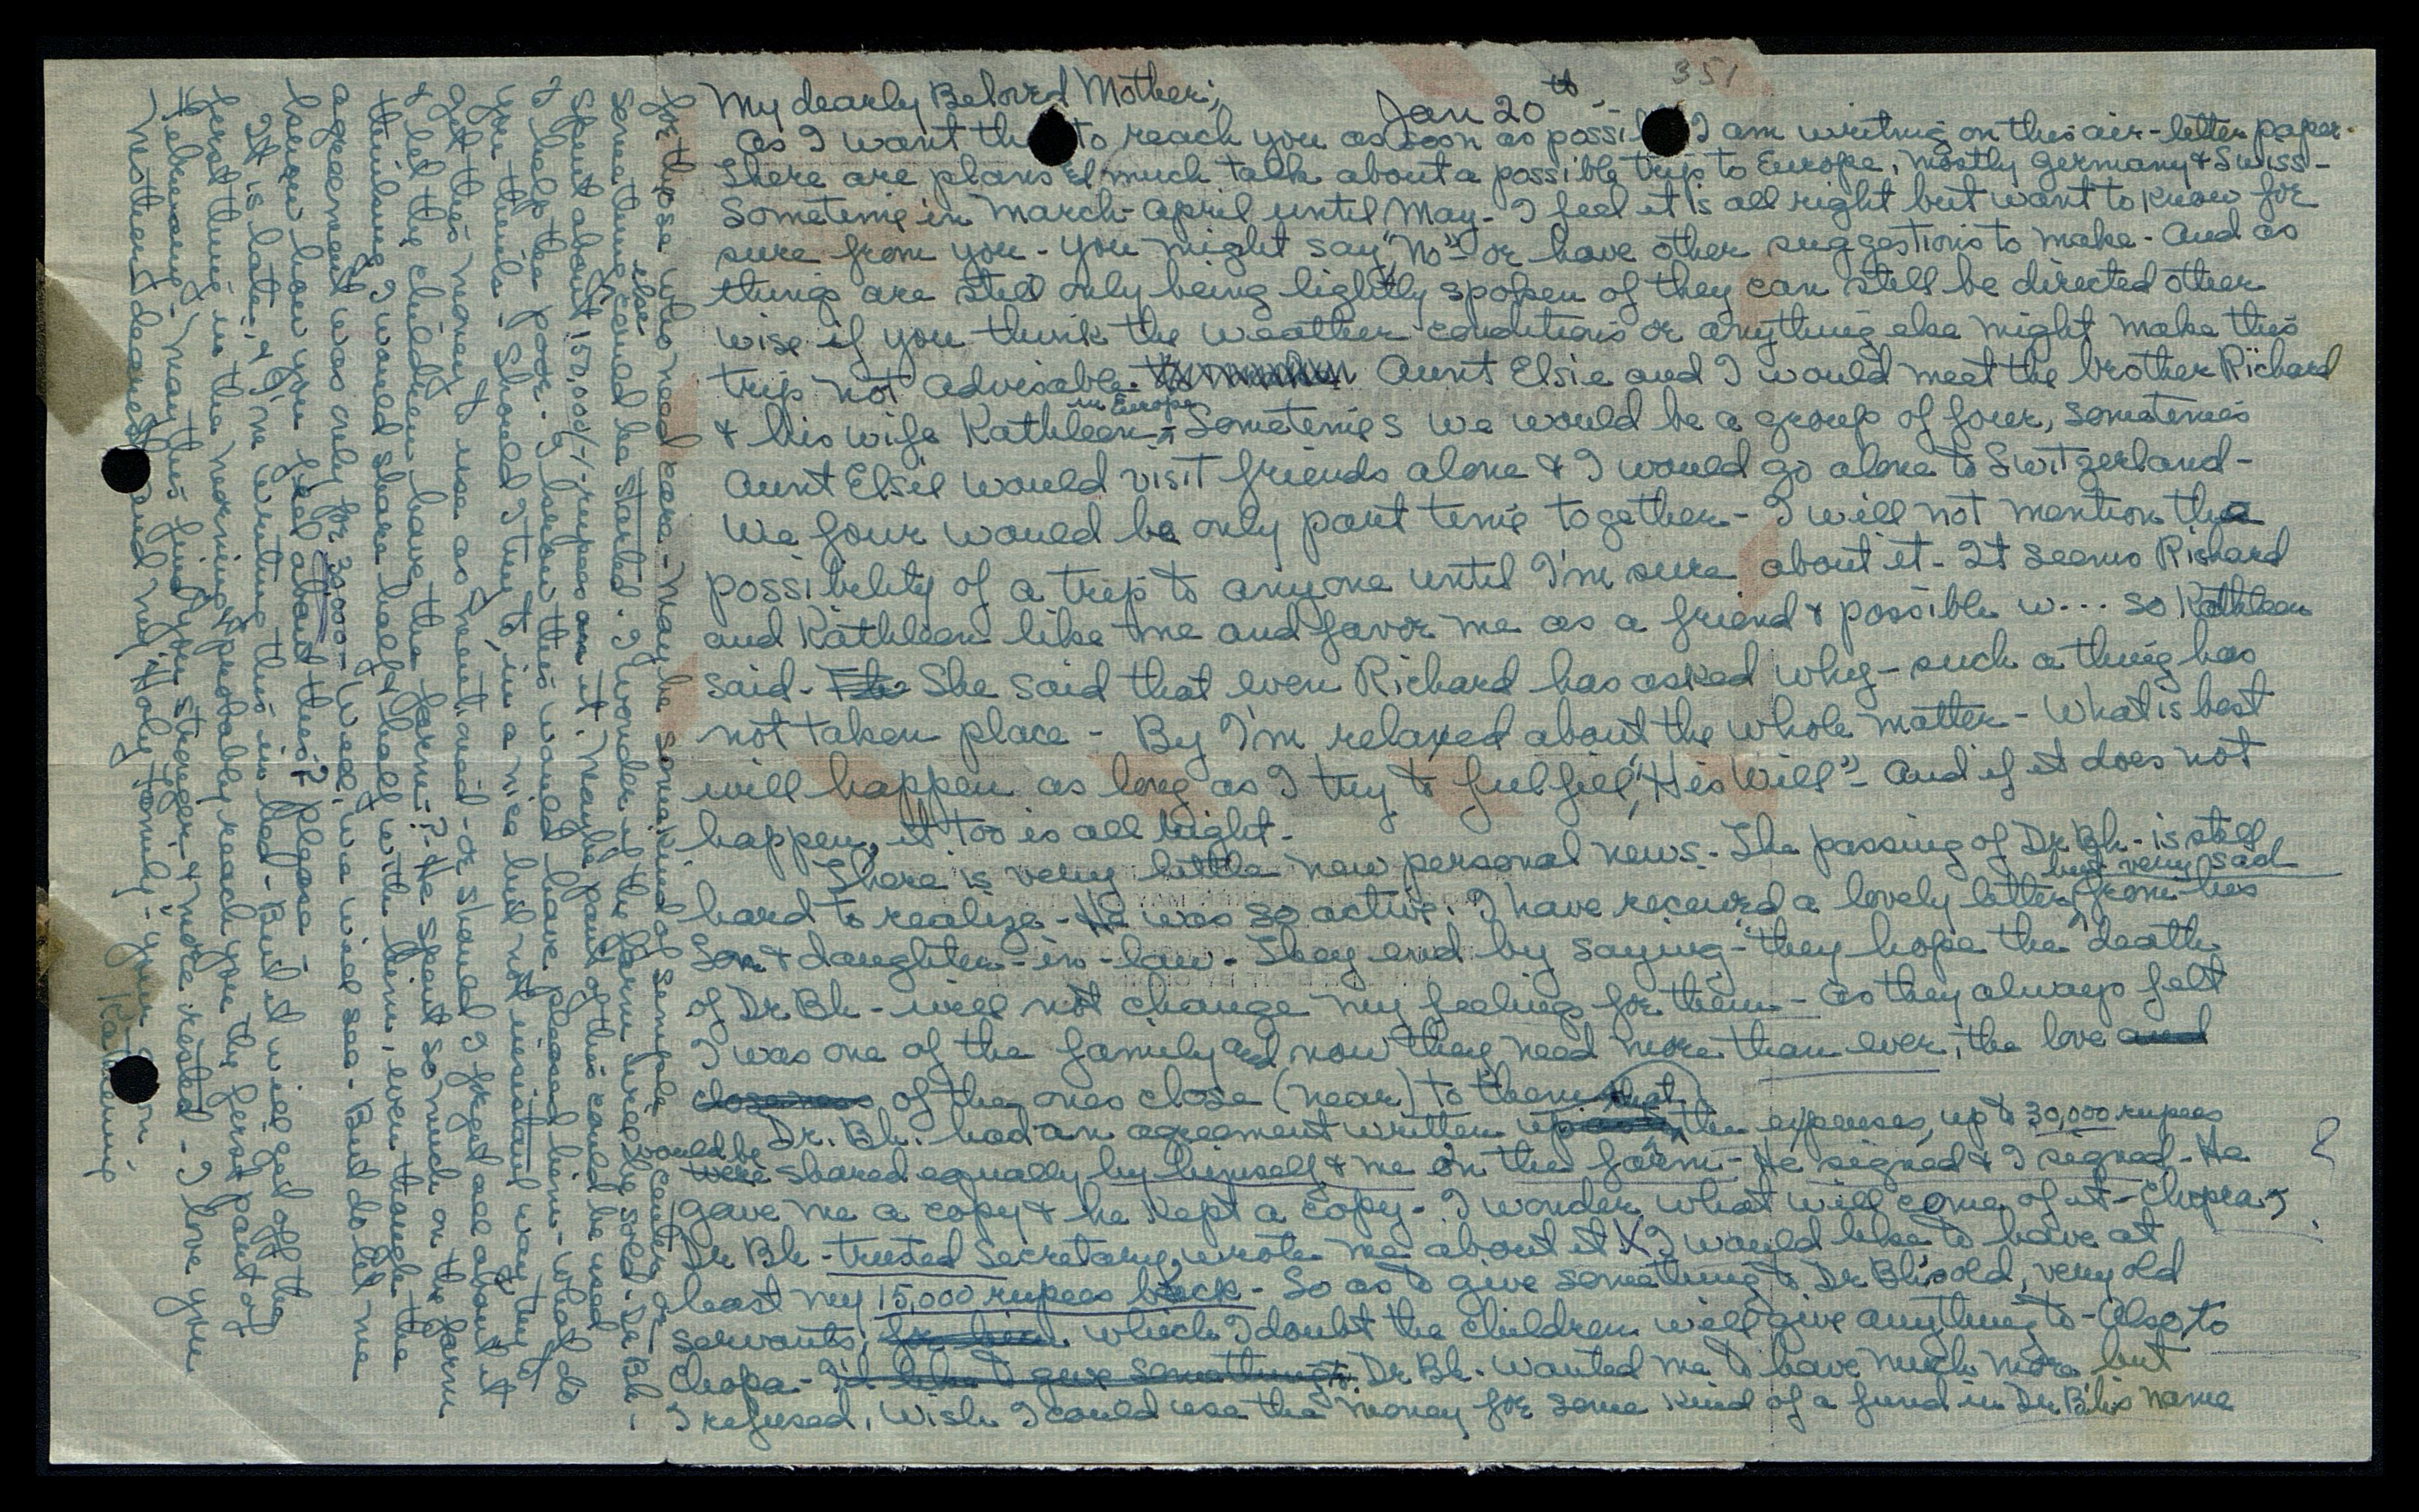 351
My dearly Beloved Mother;
Jan 20th -
As I want th to reach you as soon as possib I am writing on this air-letter paper.
There are plans & much talk about a possible trip to Europe, mostly Germany & Swiss-
Sometime in March-April until May- I feel it is all right but want to know for
sure from you - You might say "No" or have other suggestions to make- And as
things are still only being lightly spoken of they can still be directed other
wise if you think the weather conditions or anything else might make this
trip not advisable. Aunt Elsie and I would meet the brother Richard
& his wife Kathleen in Europe - Sometimes we would be a group of four, sometimes
Aunt Elsie would visit friends alone & I would go alone to Switzerland-
We four would be only part time together- I will not mention the
possibility of a trip to anyone until I'm sure about it- It seems Richard
and Kathleen like me and favor me as a friend & possible w... so Kathleen
said- She said that even Richard has asked why- such a thing has
not taken place - By I'm relaxed about the whole matter - What is best
will happen as long as I try to fulfill "His Will"- And if it does not
happen, it too is all right-
There is very little new personal news- The passing of Dr Bh- is still
hard to realize - He was so active. I have received a lovely letter, but very sad from his
Son & daughter-in-law- They end by saying- "they hope the death
of Dr Bh- will not change my feeling for them- as they always felt
I was one of the family and now they need more than ever, the love and
closeness of the ones close (near) to them
Dr. Bh. had an agreement written that the expenses, up to 30,000 rupees
would be shared equally by himself & me on the farm - He signed & I signed- He
gave me a copy & he kept a copy- I wonder what will come of it- Chopra,
Dr Bh- trusted secretary, wrote me about it. X I would like to have at
least my 15,000 rupees back- So as to give something to Dr Bh's old, very old
servants, for him which I doubt the children will give anything to- Also, to
Chopa- I'd like to give something to. Dr Bh. wanted me to have much more but
I refused, Wish I could use the money for some kind of a fund in Dr Bh's name
for those who need care - Maybe some kind of simple center or
something else could be started. I wonder if the farm will be sold- Dr Bh-
spent about 150,000/- rupees on it. Maybe part of this could be used
to help the poor- I know this would have pleased him- What do
you think- Should I try to, in a nice but not insistant way try to
get this money to use as mentioned- or should I forget all about it
& let the children have the farm? He spent so much on the farm
thinking I would share half & half with him, even though the
agreement was only for 30,000- Well, we will see- But do let me
know how you feel about this? please -
It is late, & I'm writing this in bed- But it will get off the
first thing in the morning & probably reach you the first part of
February- May this find you stronger & more rested- I love you
Mother, dearest and my "Holy Family"- your own